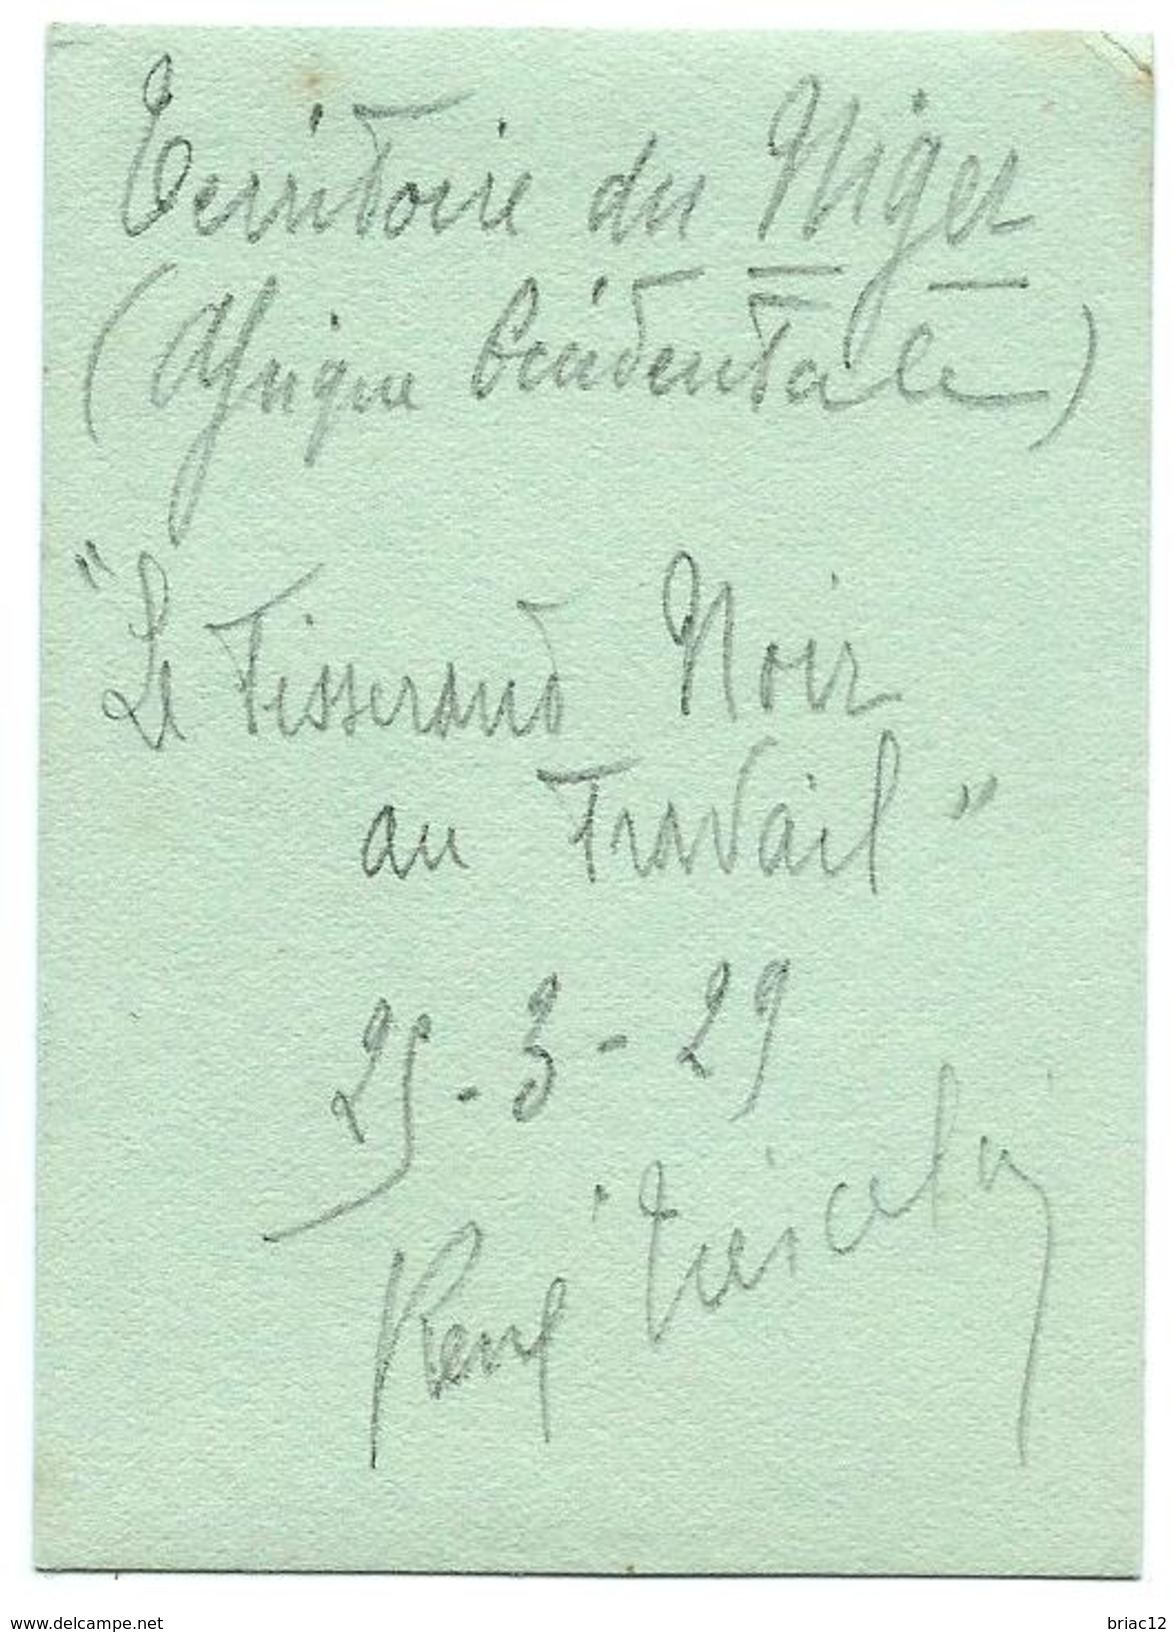 Territoire du Niger
(Afrique Occidentale)
"Le Tisserand Noir
au Travail"
25-3-29
René
www.delcampe.net
briac12